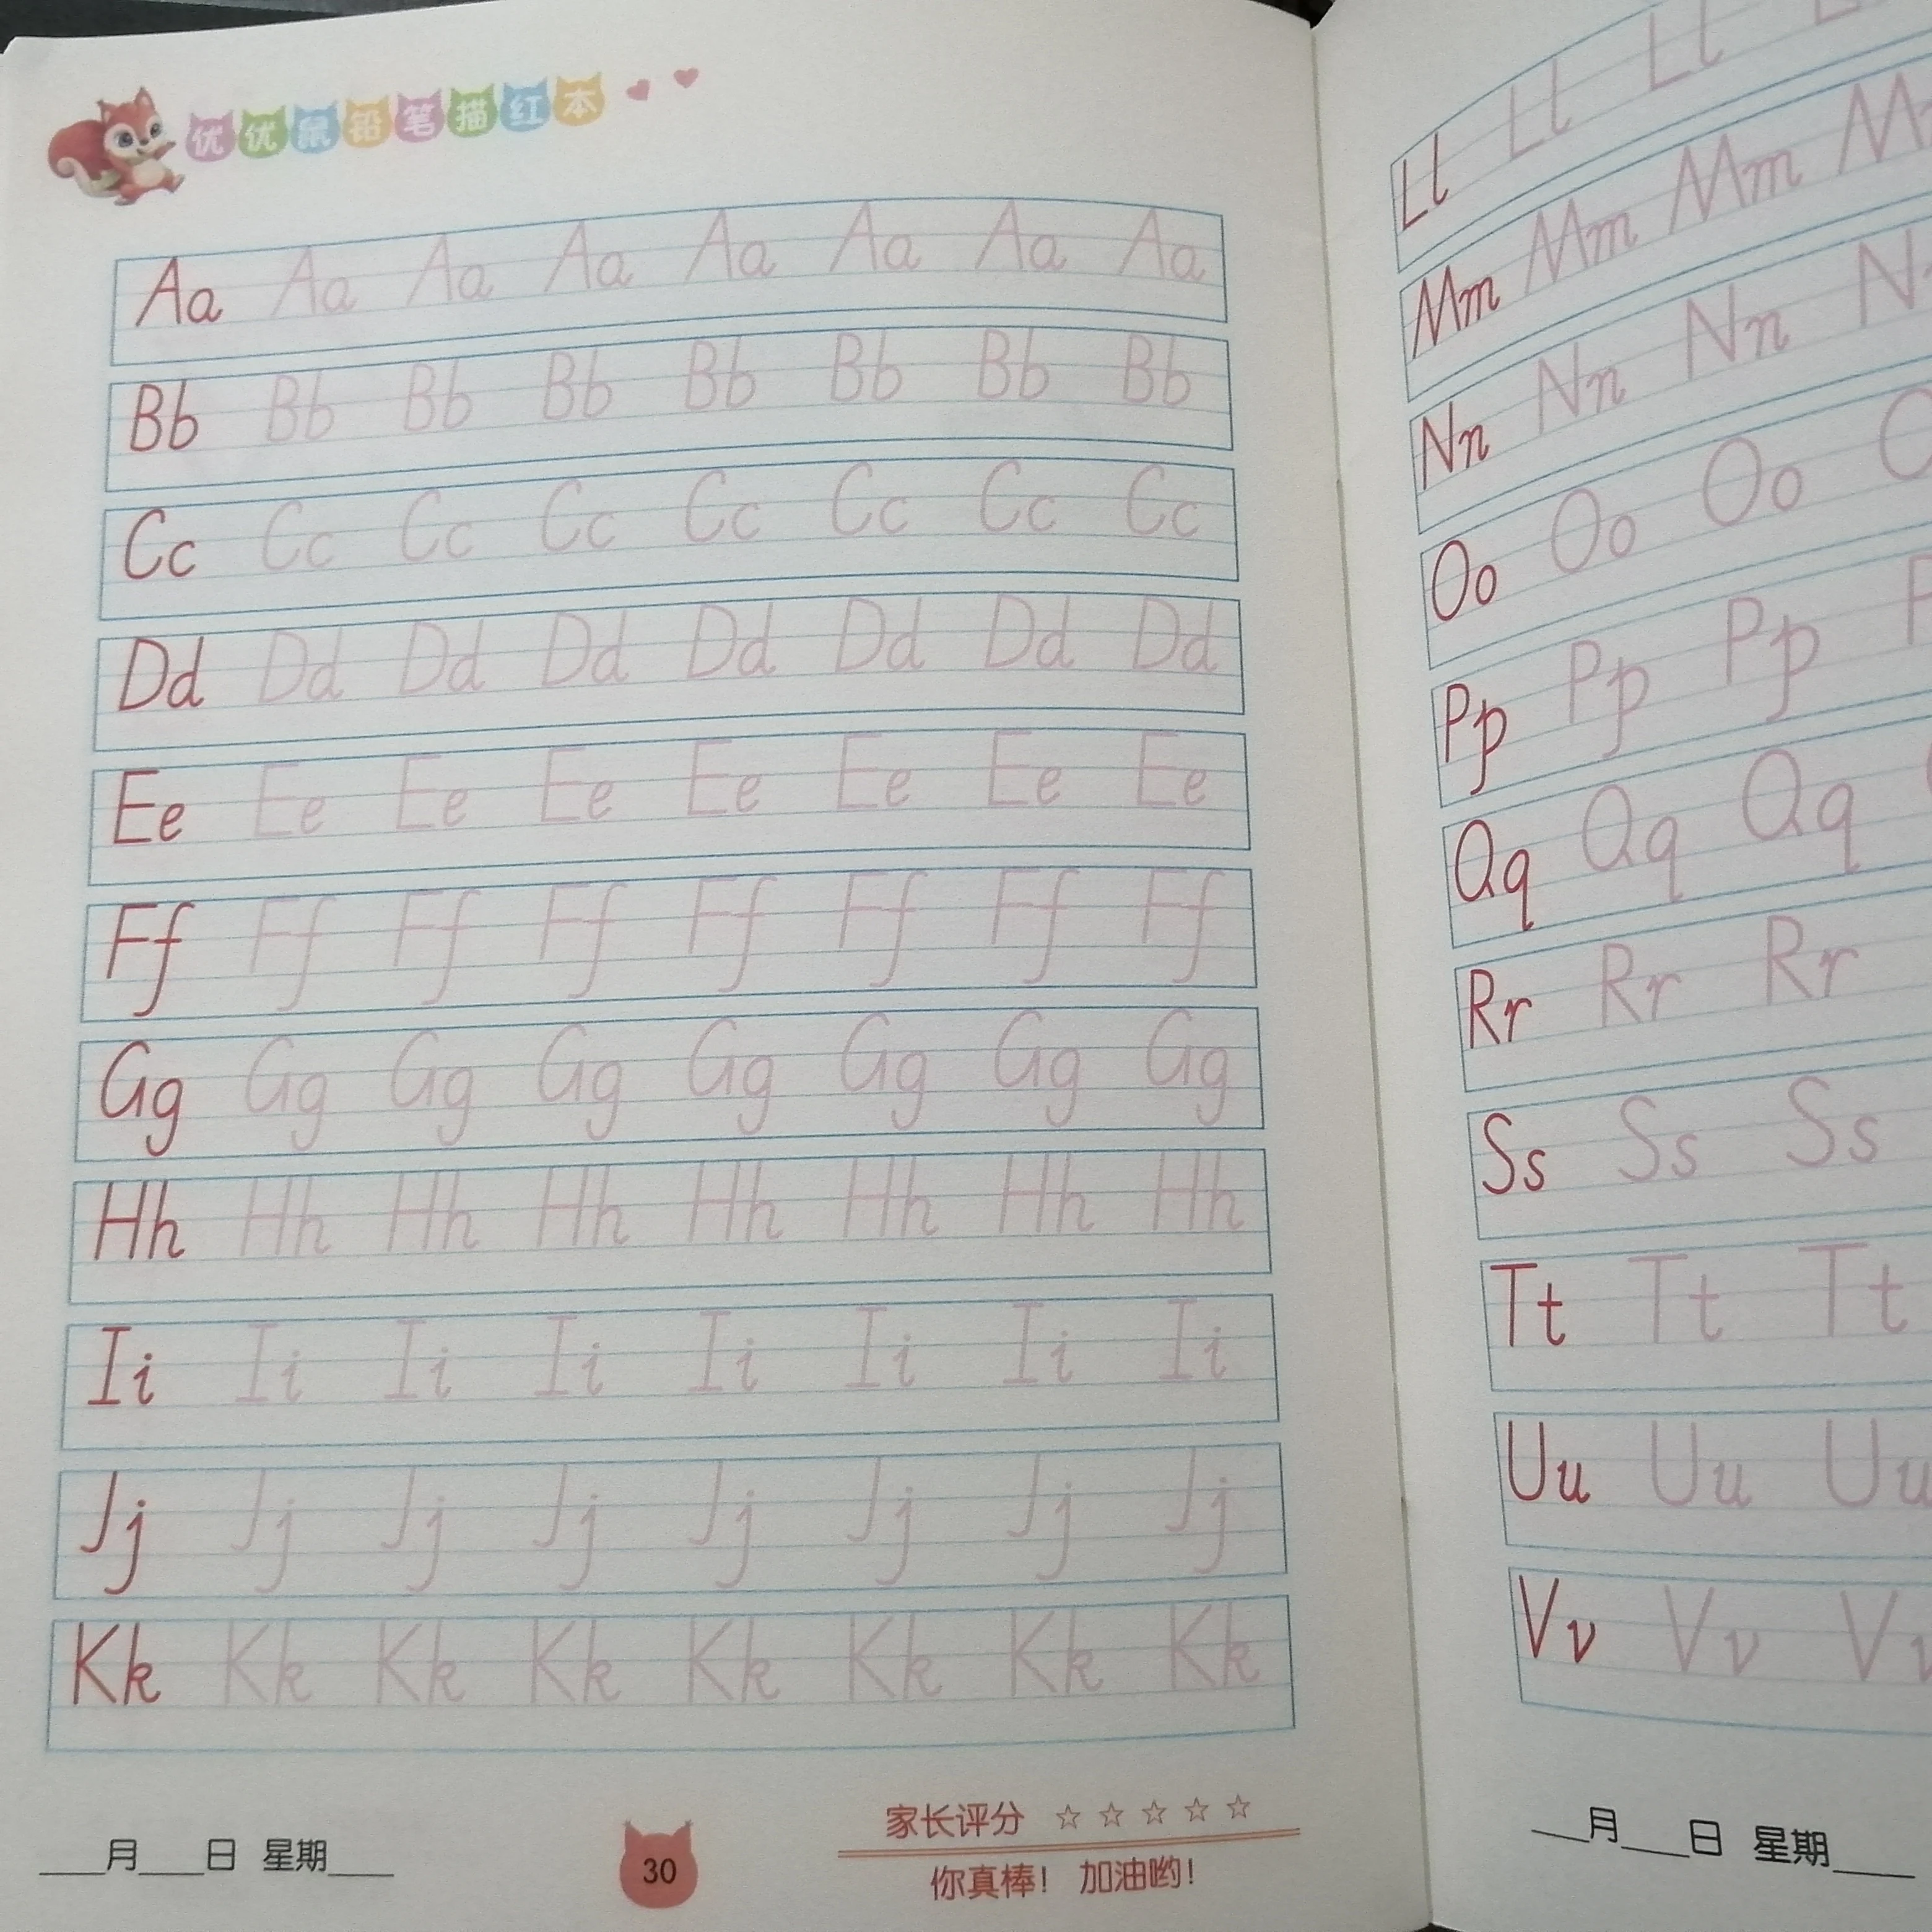 优优鼠铅笔描红本
Aa Aa Aa Aa Aa Aa Aa Aa
Bb Bb Bb Bb Bb Bb Bb Bb
Cc Cc Cc Cc Cc Cc Cc Cc
Dd Dd Dd Dd Dd Dd Dd Dd
Ee Ee Ee Ee Ee Ee Ee Ee
Ff Ff Ff Ff Ff Ff Ff Ff
Gg Gg Gg Gg Gg Gg Gg Gg
Hh Hh Hh Hh Hh Hh Hh Hh
Ii Ii Ii Ii Ii Ii Ii Ii
Jj Jj Jj Jj Jj Jj Jj Jj
Kk Kk Kk Kk Kk Kk Kk Kk
___月___日 星期___
30
家长评分 ☆ ☆ ☆ ☆ ☆
你真棒! 加油哟!
Ll Ll Ll
Mm Mm Mm M
Nn Nn Nn N
Oo Oo Oo
Pp Pp Pp
Qq Qq Qq
Rr Rr Rr
Ss Ss Ss
Tt Tt Tt
Uu Uu Uu
Vv Vv Vv
___月___日 星期___